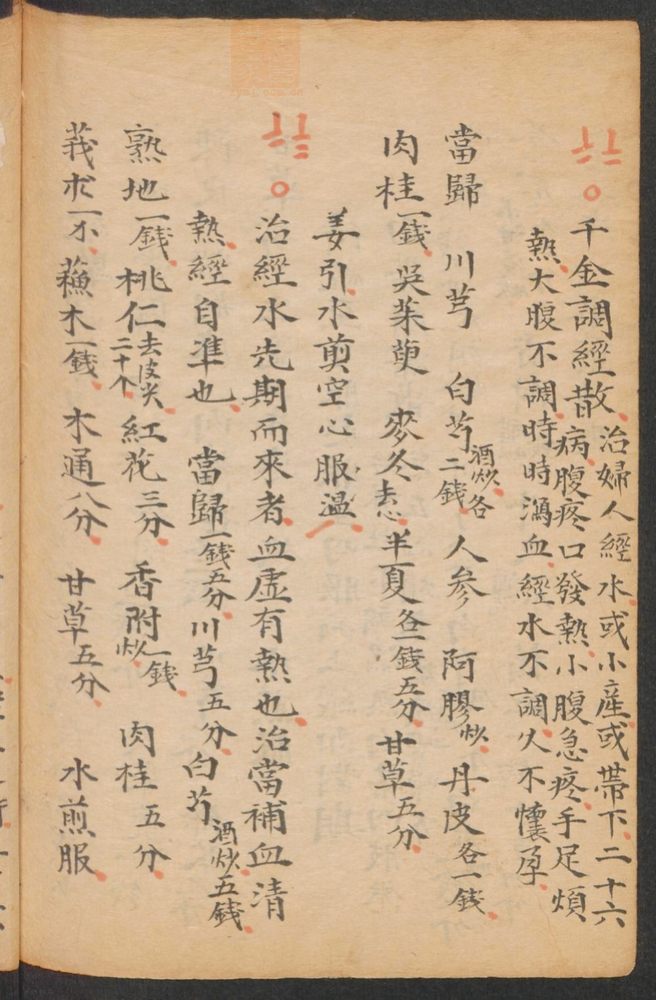 千金調經散治婦人經水或小產或帶下二十六
昔病腹疼口發熱小腹急疼手足煩
熱大腹不調時時漏血經水不調久不懷孕
當歸 川芎 白芍酒炒各二錢 人參 阿膠炒 丹皮各一錢
肉桂一錢 吳茱萸 麥冬去心 半夏各一錢五分 甘草五分
姜引水煎空心服溫
治經水先期而來者血虛有熱也治當補血清
熱經自準也 當歸一錢五分 川芎五分 白芍酒炒五錢
熟地一錢 桃仁去皮尖二十个 紅花三分 香附炒一錢 肉桂五分
莪朮一不 蘓木一錢 木通八分 甘草五分 水煎服